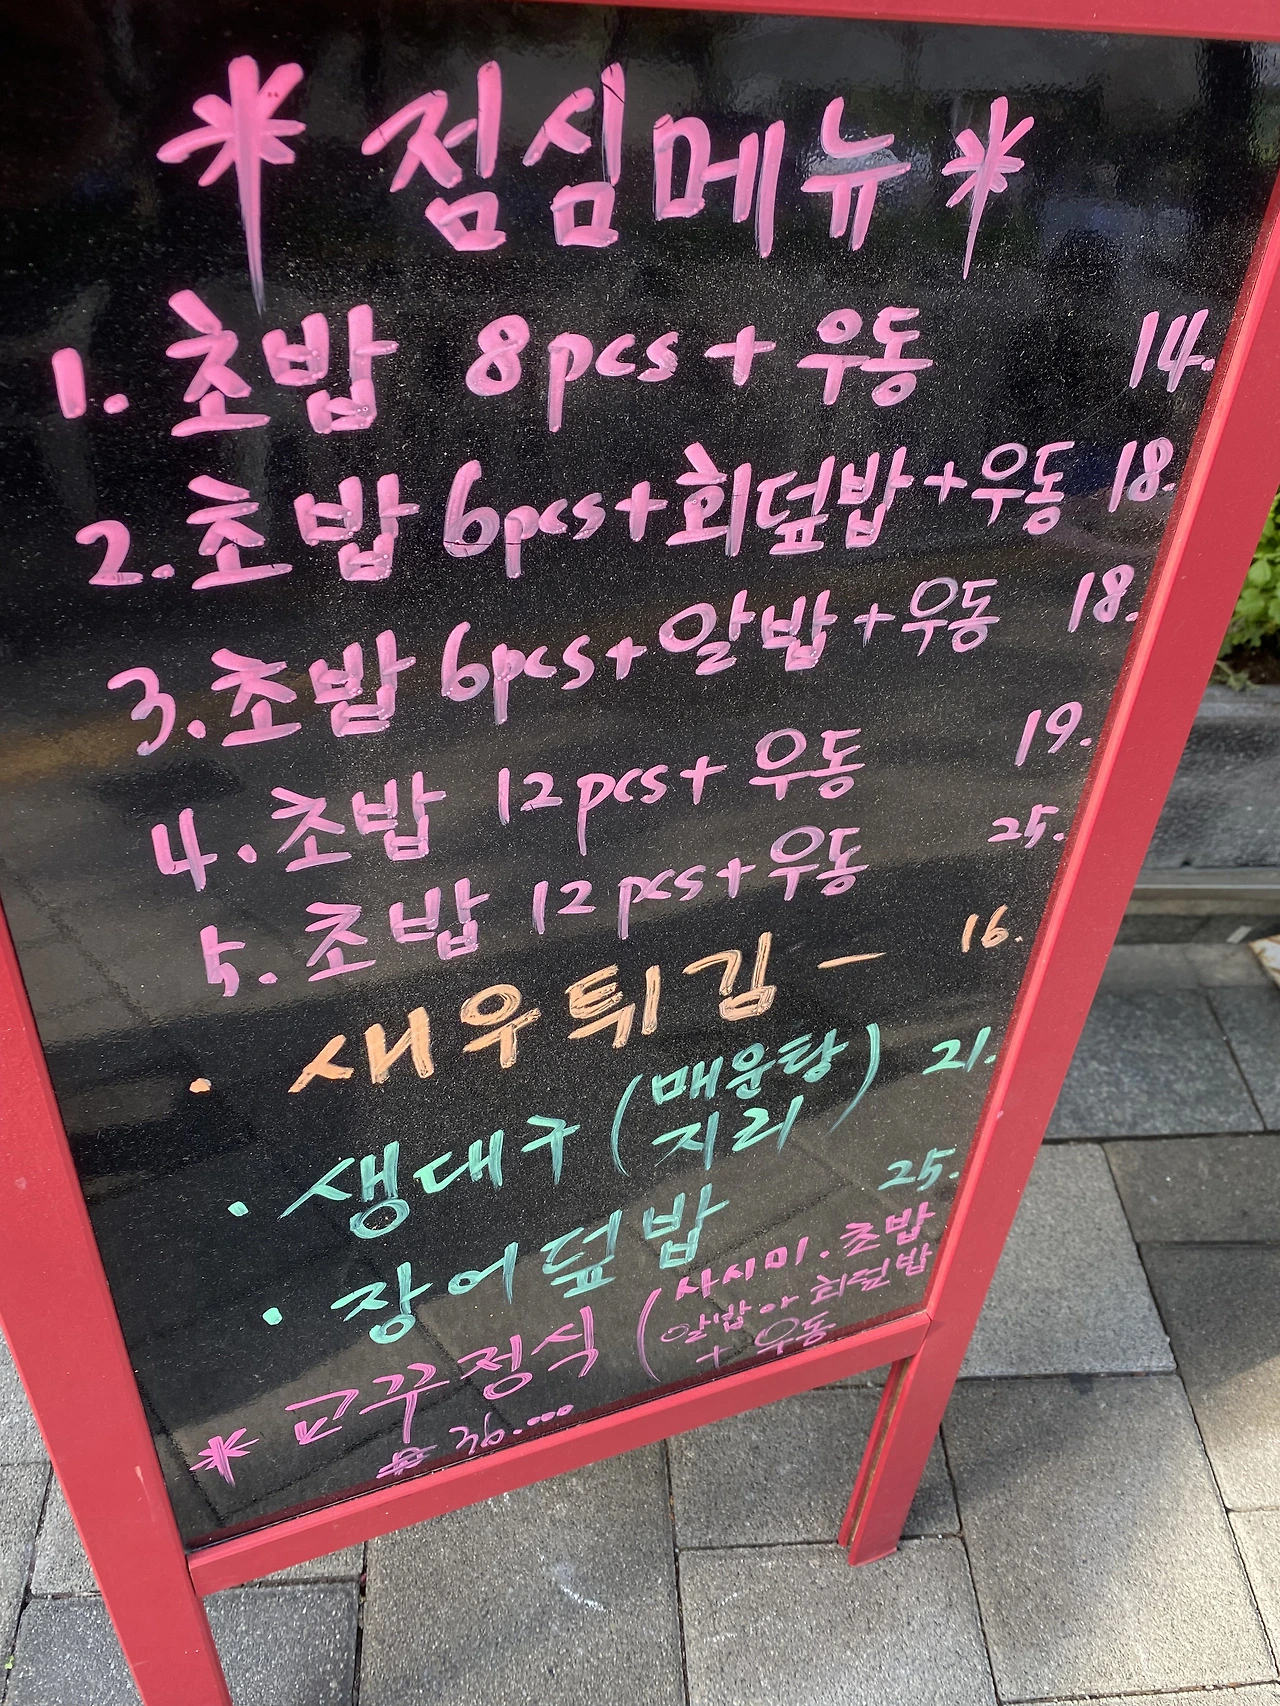 * 점심메뉴 *
1. 초밥 8pcs + 우동 14.
2. 초밥 6pcs + 회덮밥 + 우동 18.
3. 초밥 6pcs + 알밥 + 우동 18.
4. 초밥 12pcs + 우동 19.
5. 초밥 12pcs + 우동 25.
· 새우튀김 - 16.
· 생대구 (매운탕 지리) 21.
· 장어덮밥 25.
* 교꾸정식 (사시미. 초밥
알밥 or 회덮밥
+ 우동
₩ 36.000